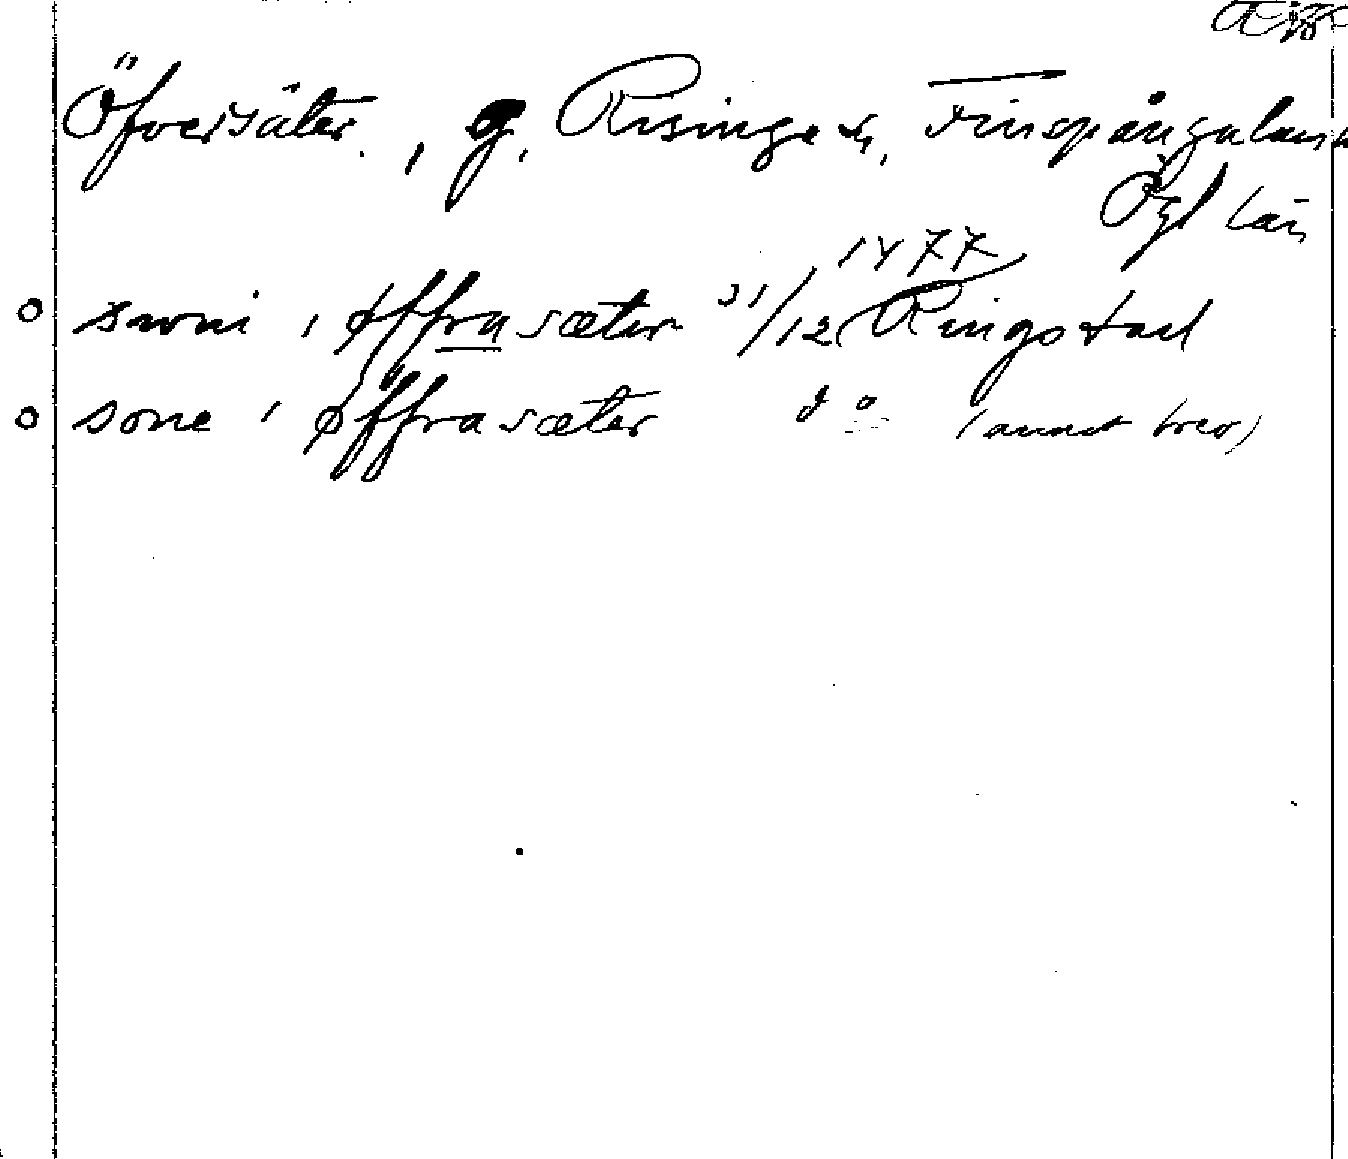 Öfversäter, g. Risinge sn, Finspångalän
Ögl län
1477
swni i øffrasæter 31/12 Ringstad
sone i øffrasæter do (annat brev)